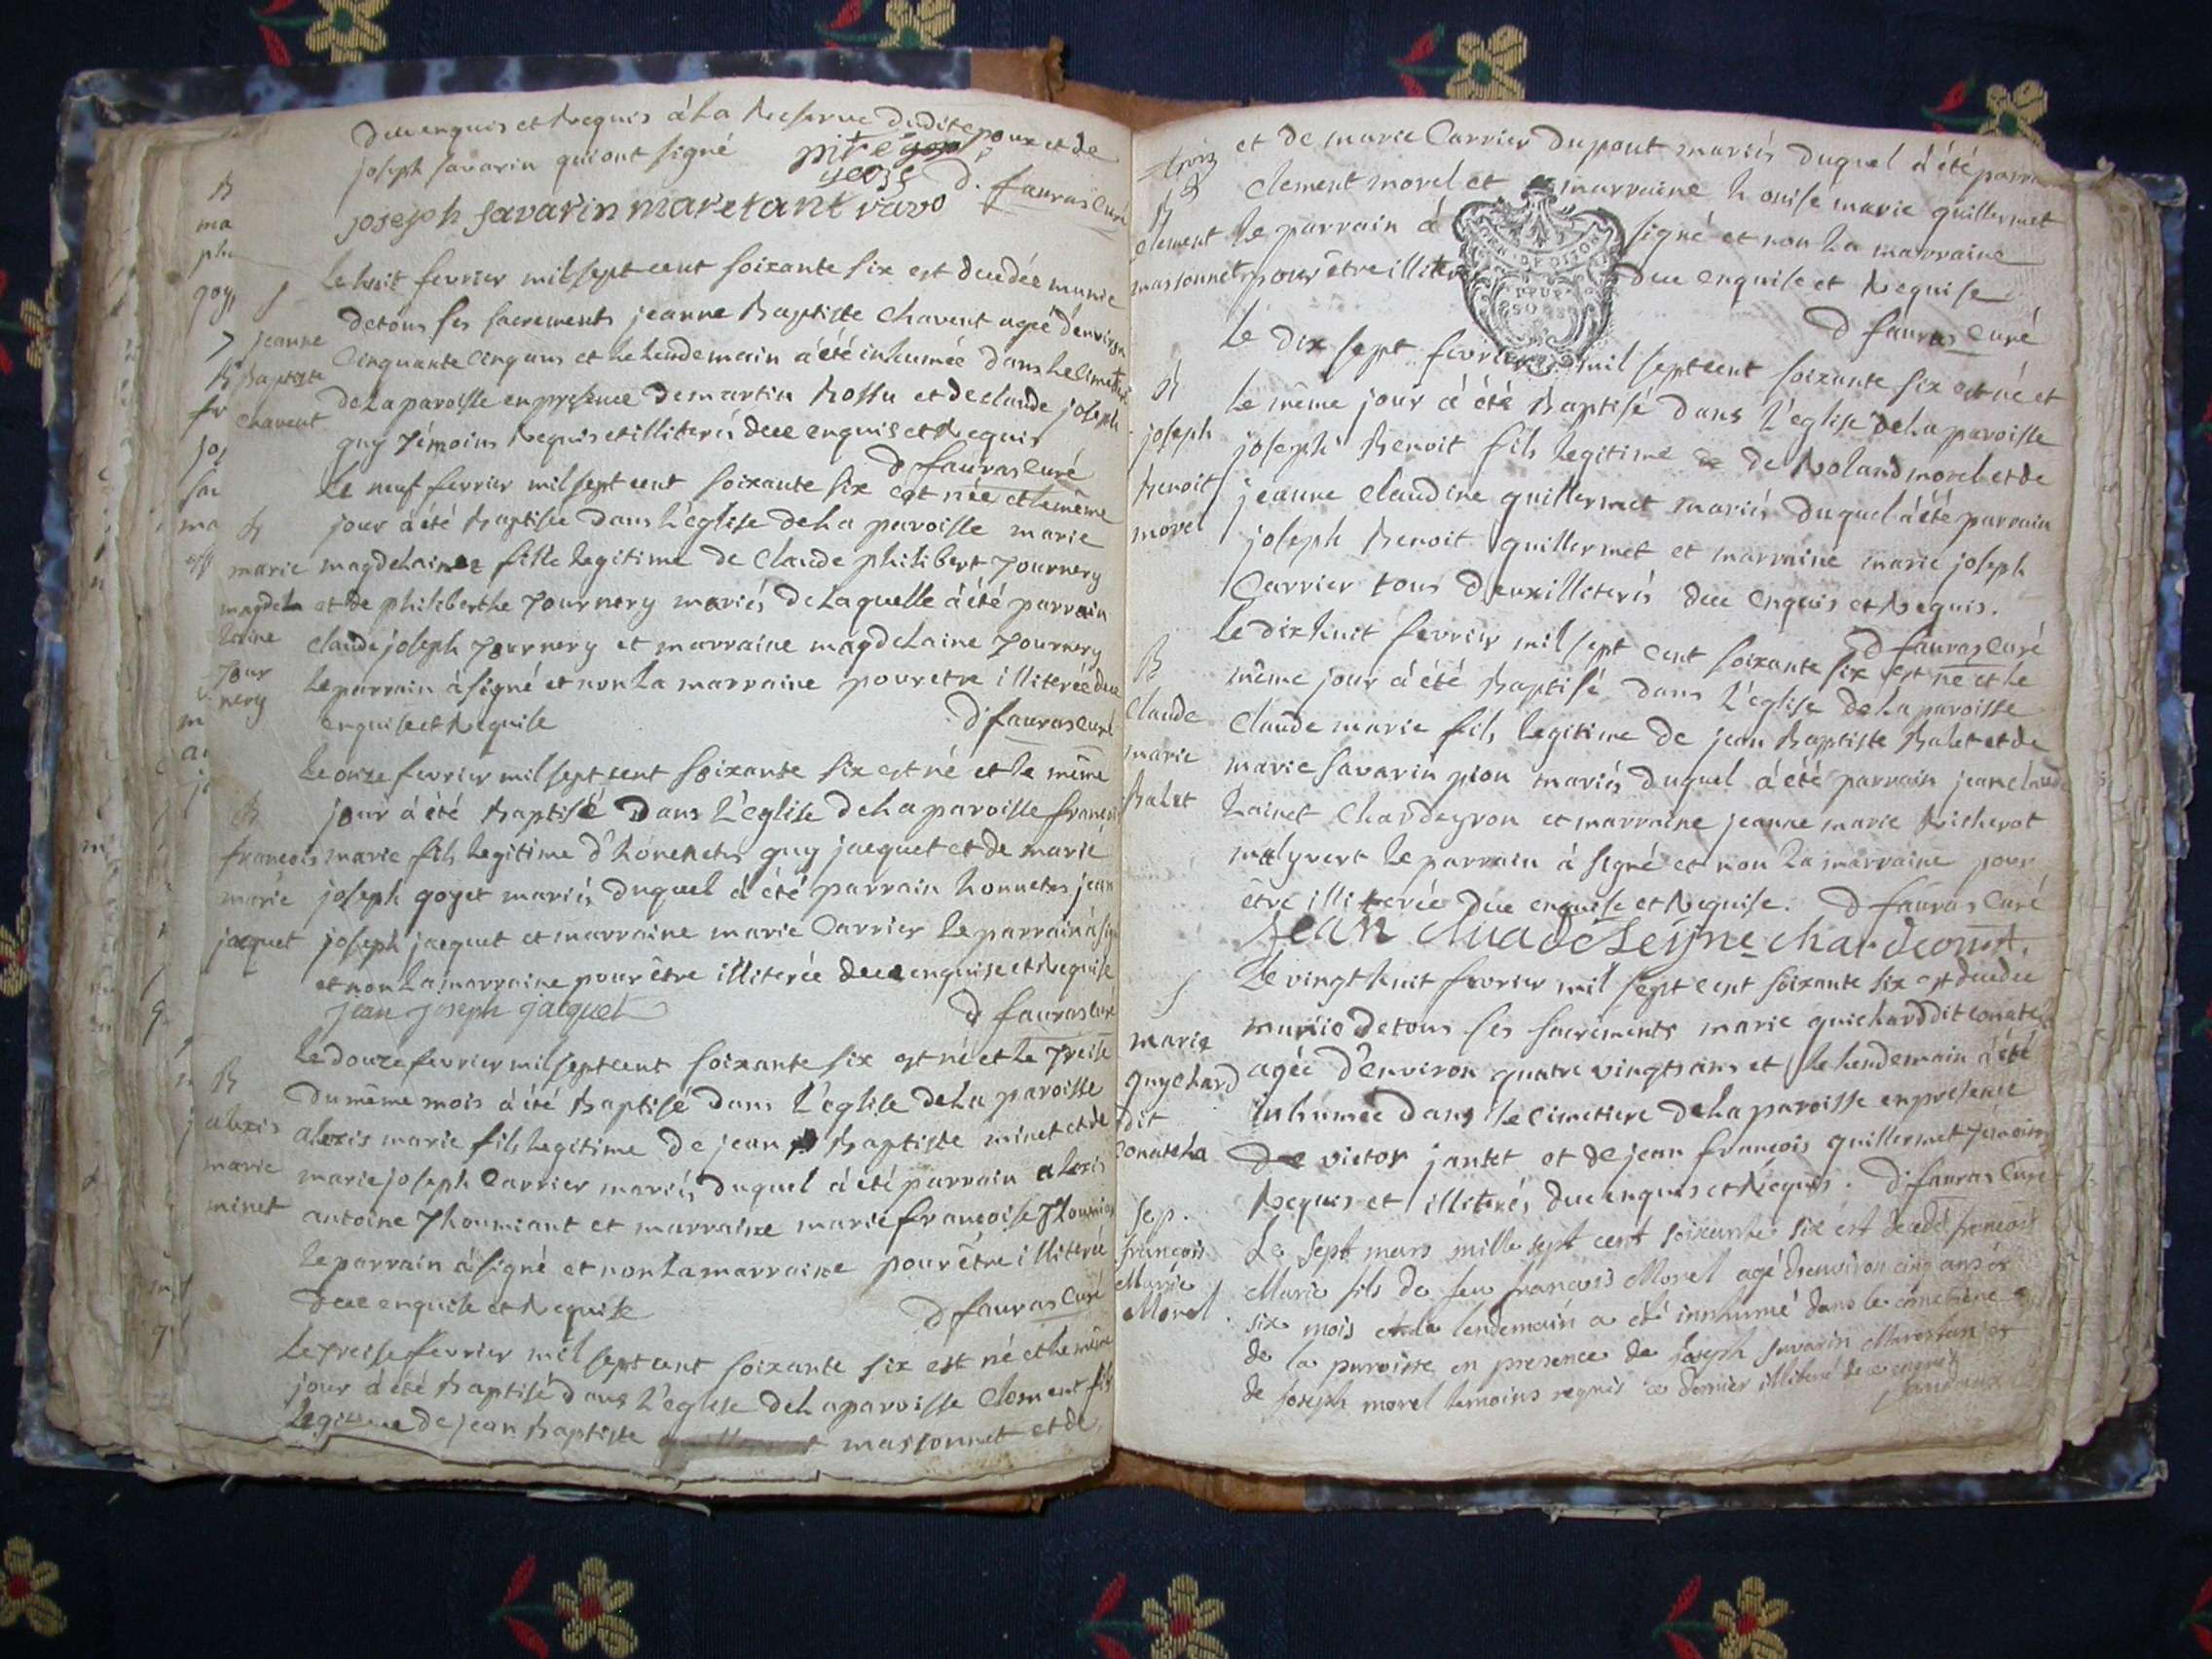 duement enquis et requis à la reserve dudit epoux et de
joseph savarin qui ont signé
joseph savarin maretant
d. fauras curé
Le huit fevrier mil sept cent soixante six est decedée munie
de tous ses sacrements jeanne Baptiste Chavent agée d'environ
Cinquante cinq ans et le lendemain à été inhumée dans le cimetiere
de la paroisse en presence de martin et de claude joseph
guy témoins requis et illiterés duement enquis et requis
d fauras curé
jeanne
Baptiste
Chavent
Le neuf fevrier mil sept cent soixante six est née et le même
jour à été Baptisée dans l'eglise de la paroisse marie
magdelaine fille legitime de Claude philibert Tournery
et de philiberthe Tournery mariés de laquelle à été parrain
claude joseph Tournery et marraine magdelaine Tournery
le parrain à signé et non la marraine pour etre illiterée due
enquise et requise
d fauras curé
B
marie
magdela
laine
Tour
nery
Le onze fevrier mil sept cent soixante six est né et le même
jour à été Baptisé dans l'eglise de la paroisse francois
marie fils legitime d'honnetes guy jacquet et de marie
joseph goyet mariés duquel à été parrain honnetes jean
joseph jacquet et marraine marie Carrier le parrain à signé
et non la marraine pour être illiterée due enquise et requise
jean joseph jacquet
d fauras curé
B
francois
marie
jacquet
Le douze fevrier mil sept cent soixante six est né et le Treise
du même mois à été Baptisé dans l'eglise de la paroisse
alexis marie fils legitime de jean Baptiste minet et de
marie joseph Carrier mariés duquel à été parrain alexis
antoine Thoumiant et marraine marie francoise
le parrain à signé et non la marraine pour être illiterée
due enquise et requise
d fauras curé
B
alexis
marie
minet
Le Treise fevrier mil sept cent soixante six est né et le même
jour à été Baptisé dans l'eglise de la paroisse Clement fils
legitime de jean Baptiste massonnet et de
et de marie Carrier dupont mariés duquel à été parrain
Clement morel et marraine Louise marie guillermet
le parrain à signé et non la marraine
pour être illiterée due enquise et requise
d fauras curé
B
Clement
massonnet
Le dix sept fevrier mil sept cent soixante six est né et
le même jour à été Baptisé dans l'eglise de la paroisse
joseph Benoit fils legitime de Roland morel et de
jeanne Claudine guillermet mariés duquel à été parrain
joseph Benoit guillermet et marraine marie joseph
Carrier tous deux illiterés due enquis et requis.
d fauras curé
B
joseph
Benoit
morel
Le dix huit fevrier mil sept cent soixante six est né et le
même jour à été Baptisé dans l'eglise de la paroisse
Claude marie fils legitime de jean Baptiste Balet et de
marie savarin pion mariés duquel à été parrain jean claude
lainet Chardeyron et marraine jeanne marie
malyvert le parrain à signé et non la marraine pour
être illiterée due enquise et requise. d fauras curé
B
Claude
marie
Balet
Le vingt huit fevrier mil sept cent soixante six est decedée
munie de tous ses sacrements marie guichard dit
agée d'environ quatre vingts ans et le lendemain à été
inhumée dans le cimetiere de la paroisse en presence
de victor jantet et de jean francois guillermet témoins
requis et illiterés due enquis et requis. d fauras curé
marie
guychard
dit
Le sept mars mille sept cent soixante six est decedé francois
Marie fils de feu francois Morel agé d'environ cinq ans et
six mois et le lendemain a été innhumé dans le cimetiere
de la paroisse en presence de joseph savarin Maretan et
de joseph morel temoins requis ce dernier illiteré de ce enquis
Sep.
francois
Marie
Morel.